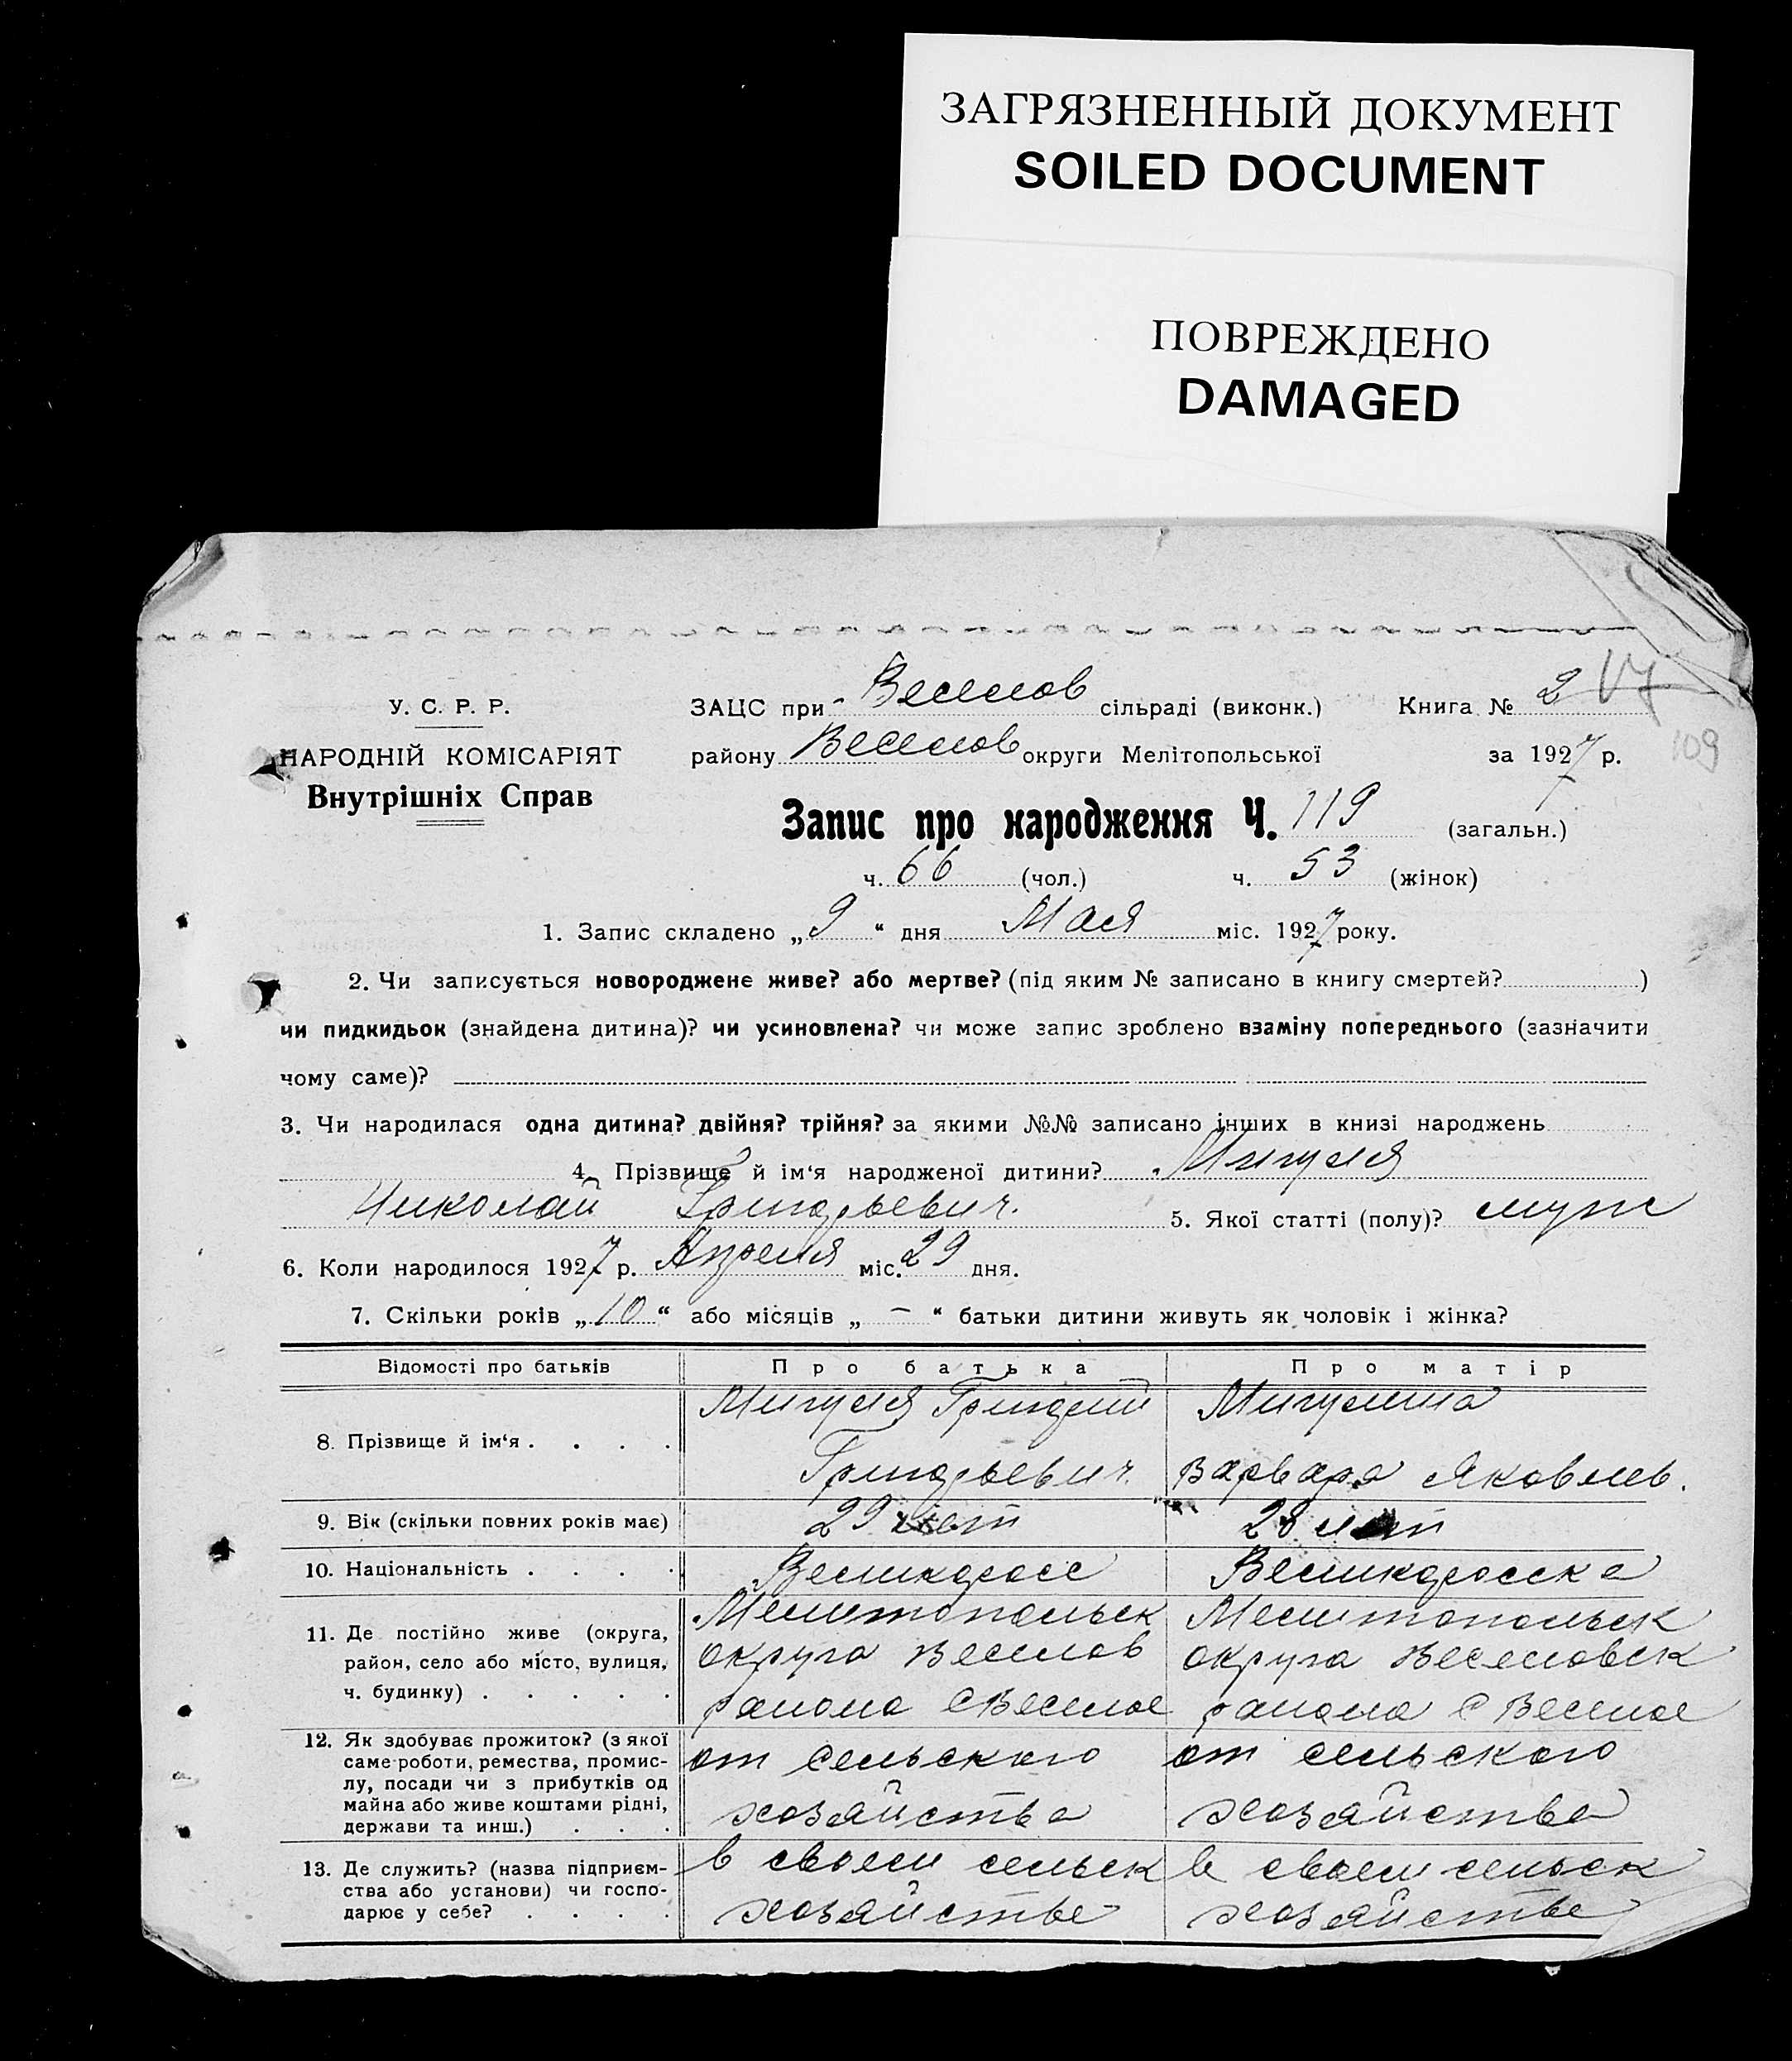 ЗАГРЯЗНЕННЫЙ ДОКУМЕНТ
SOILED DOCUMENT
ПОВРЕЖДЕНО
DAMAGED
У. С. Р. Р.
НАРОДНІЙ КОМІСАРІЯТ
Внутрішніх Справ
ЗАЦС при Веселов сільраді (виконк.) Книга № 2
109
району Веселов округи Мелітопольської за 1927 р.
Запис про народження Ч. 119 (загальн.)
ч. 66 (чол.) ч. 53 (жінок)
1. Запис складено „9“ дня Мая міс. 1927 року.
2. Чи записується новороджене живе? або мертве? (під яким № записано в книгу смертей? )
чи пидкидьок (знайдена дитина)? чи усиновлена? чи може запис зроблено взаміну попереднього (зазначити
чому саме)?
3. Чи народилася одна дитина? двійня? трійня? за якими №№ записано інших в книзі народжень
4. Прізвище й ім‘я народженої дитини? Мигуля
Николай Григорьевич. 5. Якої статті (полу)? муж
6. Коли народилося 1927 р. Апреля міс. 29 дня.
7. Скільки років „10“ або місяців „—“ батьки дитини живуть як чоловік і жінка?
Відомості про батьків Про батька Про матір
8. Прізвище й ім‘я . . . . Мигуля Григорий Мигулина
Григорьевич. Варвара Яковлев.
9. Вік (скільки повних років має) 29 лет 28 лет
10. Національність . . . . Великоросс Великоросска
11. Де постійно живе (округа, Мелитопольск Мелитопольск
район, село або місто, вулиця, округа Веселов округа Веселовск
ч. будинку) . . . . . района С Веселое района С Веселое
12. Як здобуває прожиток? (з якої
саме роботи, ремества, промис- от сельского от сельского
лу, посади чи з прибутків од
майна або живе коштами рідні, хозяйства хозяйства
держави та инш.) . . .
13. Де служить? (назва підприєм- в своем сельск в своем сельск
ства або установи) чи госпо-
дарює у себе? . . . . хозяйстве хозяйстве